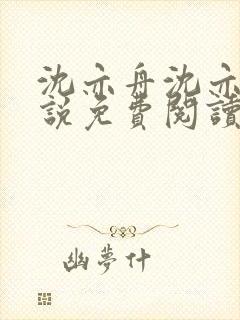 沈亦舟沈亦
說免費閱讀
幽夢什